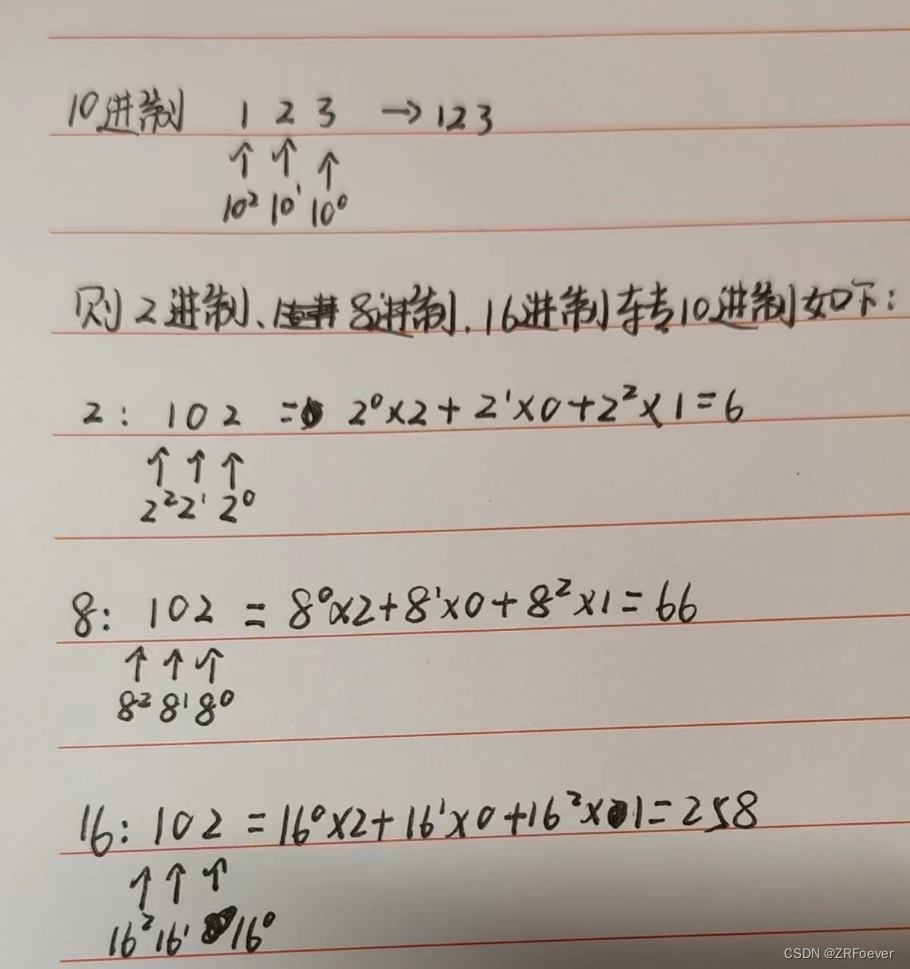 10进制 1 2 3 → 123
↑ ↑ ↑
10² 10¹ 10⁰
则2进制、8进制.16进制转10进制如下:
2: 102 = 2⁰×2+2¹×0+2²×1=6
↑ ↑ ↑
2² 2¹ 2⁰
8: 102 = 8⁰×2+8¹×0+8²×1=66
↑ ↑ ↑
8² 8¹ 8⁰
16: 102 = 16⁰×2+16¹×0+16²×1=258
↑ ↑ ↑
16² 16¹ 16⁰
CSDN @ZRFoever